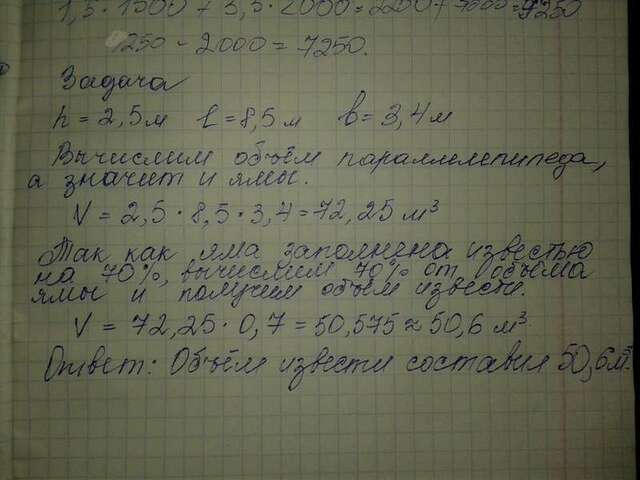 1,5 · 1500 + 3,5 · 2000 = 2250 + 7000 = 9250
9250 - 2000 = 7250.
Задача
h = 2,5 м l = 8,5 м b = 3,4 м
Вычислим объём параллелепипеда,
а значит и ямы.
V = 2,5 · 8,5 · 3,4 = 72,25 м³
Так как яма заполнена известью
на 70%, вычислим 70% от объема
ямы и получим объём извести.
V = 72,25 · 0,7 = 50,575 ≈ 50,6 м³
Ответ: Объём извести составил 50,6 м³.